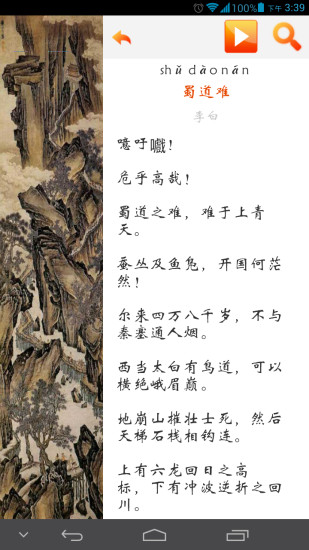 100% 下午 3:39
shǔ dàonán
蜀道难
李白
噫吁嚱！
危乎高哉！
蜀道之难，难于上青
天。
蚕丛及鱼凫，开国何茫
然！
尔来四万八千岁，不与
秦塞通人烟。
西当太白有鸟道，可以
横绝峨眉巅。
地崩山摧壮士死，然后
天梯石栈相钩连。
上有六龙回日之高
标，下有冲波逆折之回
川。